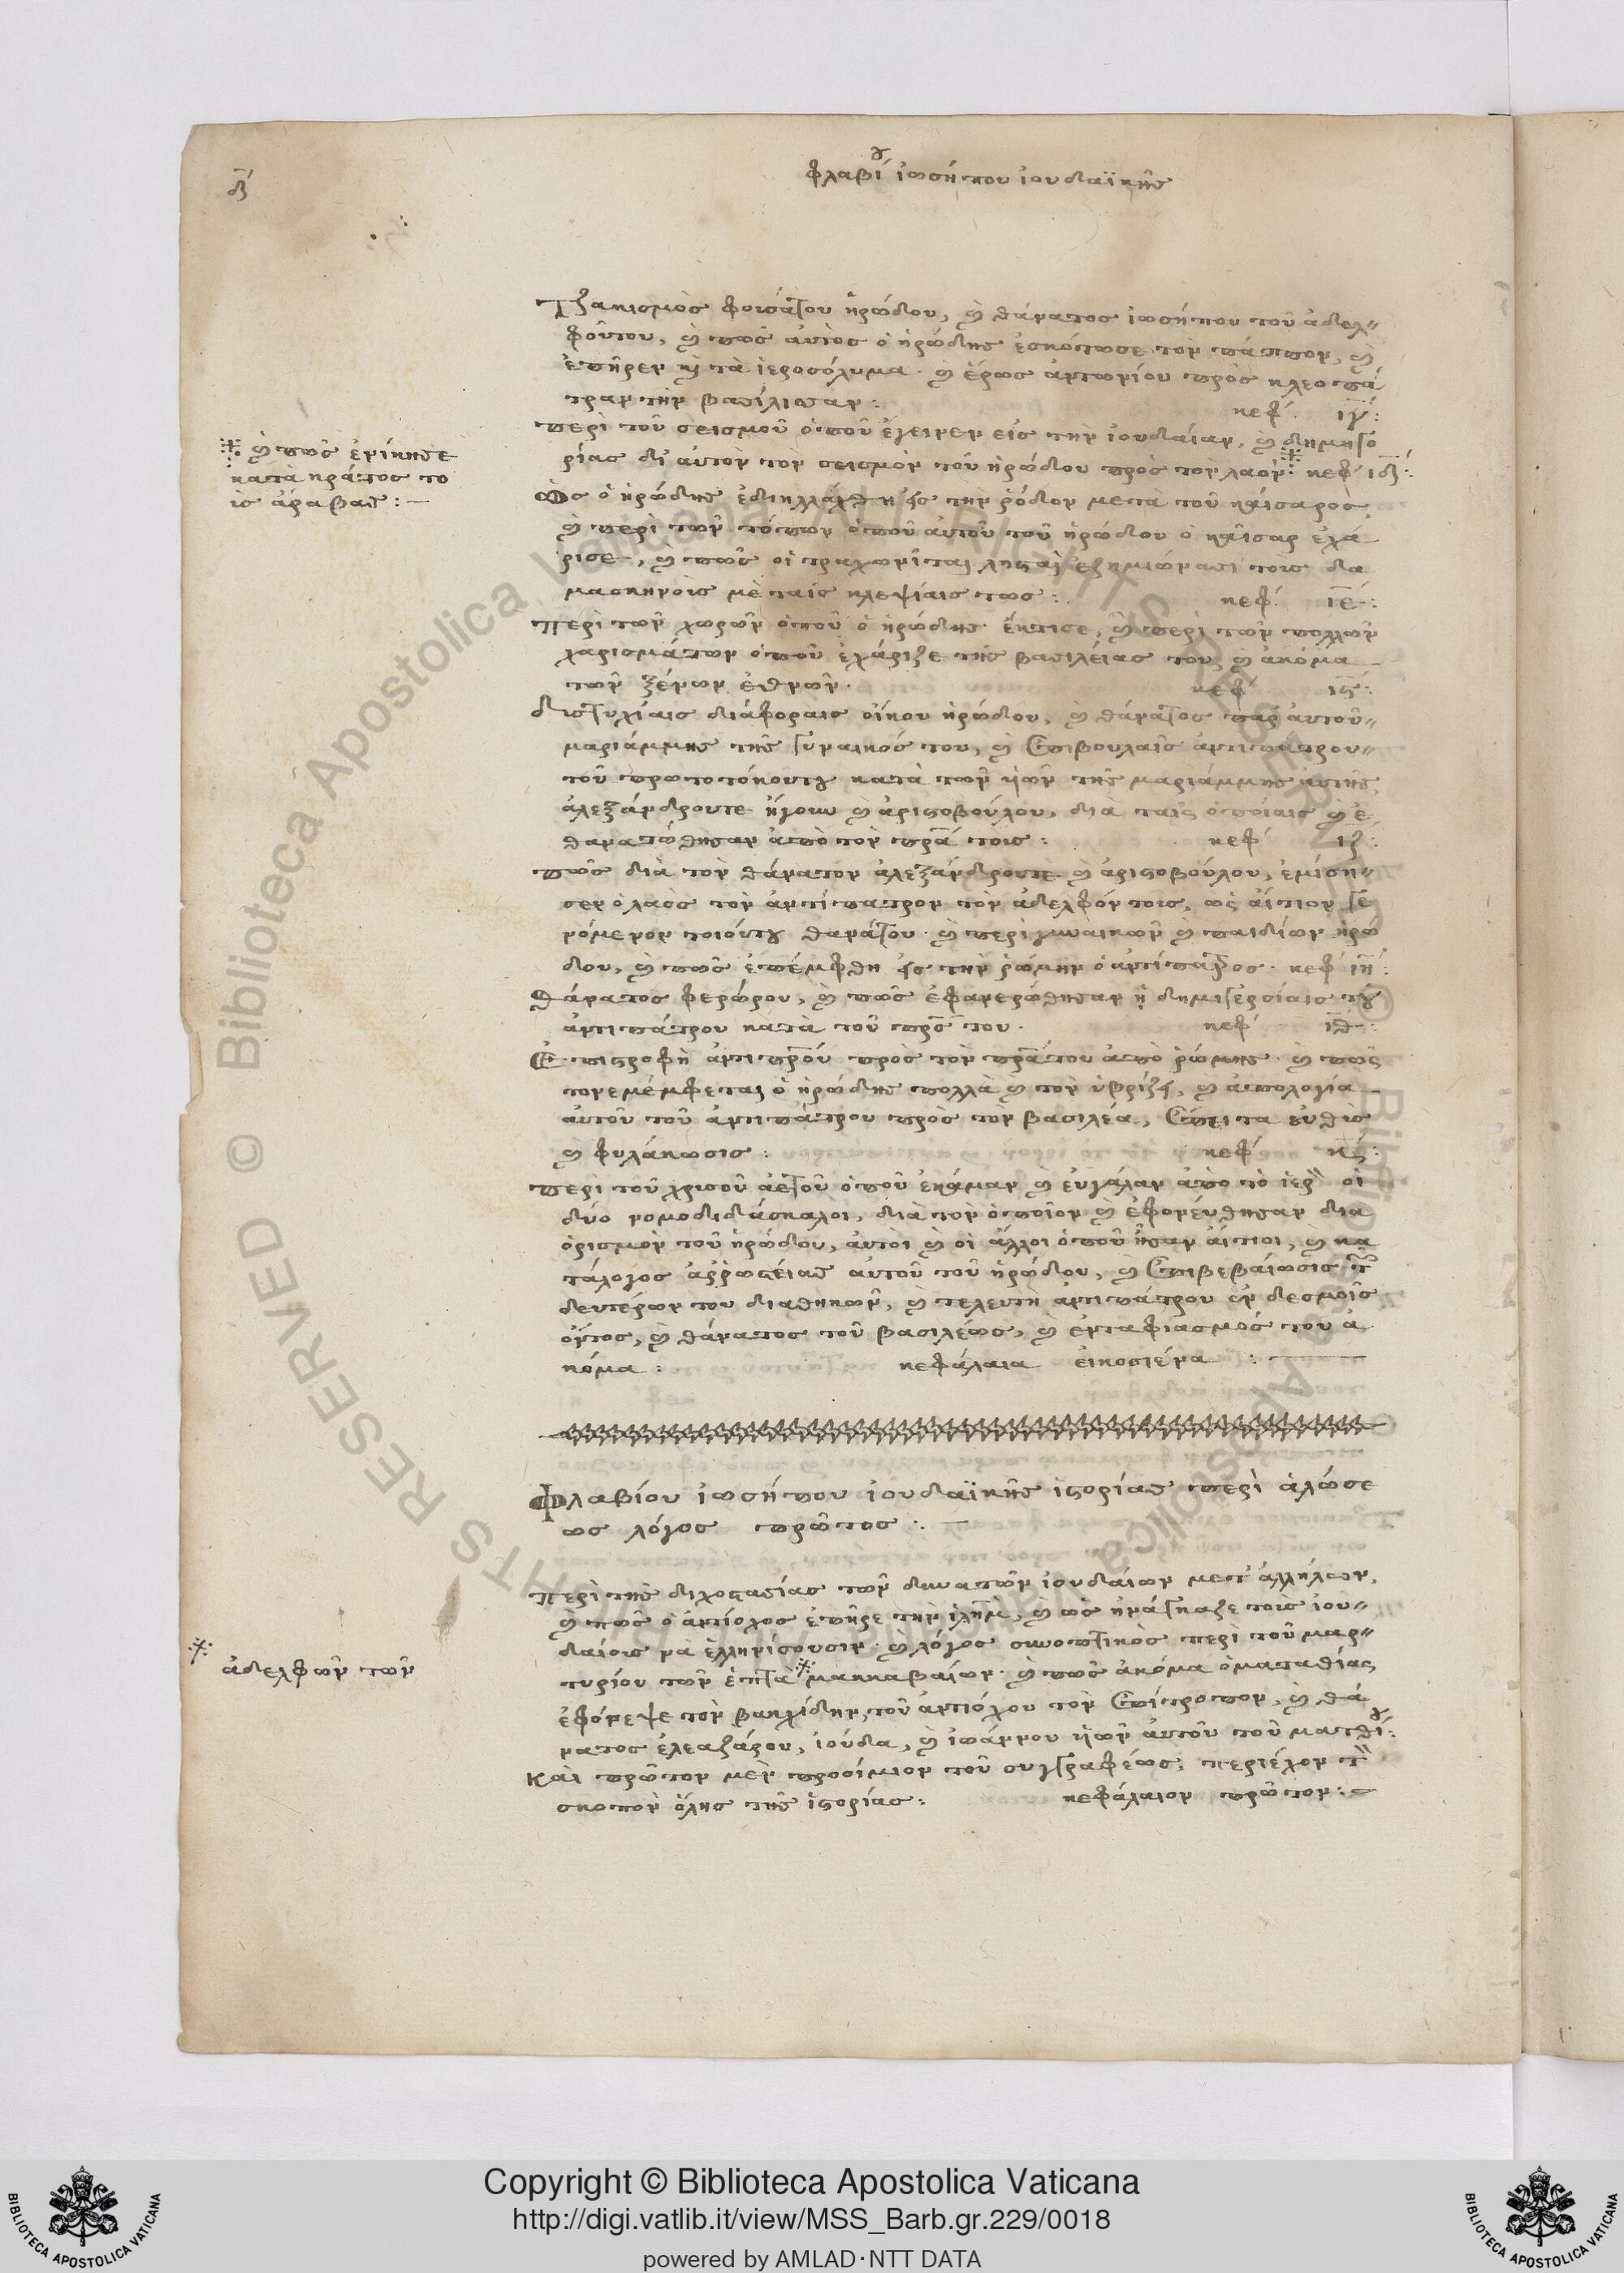 δ̄
φλαβίου ἰωσήπου ἰουδαϊκῆς
Τζακισμὸς φουσάτου ἡρώδου, καὶ θάνατος ἰωσήπου τοῦ ἀδελ-
φοῦτου, καὶ πῶς ἀυτὸς ὁ ἡρώδης ἐσκότωσε τὸν πάππον, καὶ
ἐπῆρεν καὶ τὰ ἱεροσόλυμα· καὶ ἔρως ἀντωνίου πρὸς κλεοπά
τραν τὴν βασίλισσαν : κεφ. ιγ΄:
περὶ τοῦ σεισμοῦ ὁποῦ ἔγεινεν εἰς τὴν ἰουδαίαν, καὶ δημηγο
ρίας δι αὐτὸν τὸν σεισμὸν τοῦ ἡρώδου πρὸς τὸν λαόν : κεφ ιδ΄:
⁜ καὶ πῶς ἐνίκησε
κατὰ κράτος το
ὺς ἄραβας : —
Ὡς ὁ ἡρώδης ἐδιηλλάχθη εἰς τὴν ῥόδον μετὰ τοῦ καίσαρος,
καὶ περὶ τῶν τόπων ὁποῦ αὐτοῦ τοῦ ἡρώδου ὁ καῖσαρ ἐχά
ρισε, καὶ πῶς οἱ τραχωνῖται λησταὶ ἐζημιώνασι τοὺς δα
μασκηνοὺς μὲ ταῖς κλεψίαις τως : κεφ. ιε΄:
Περὶ τῶν χωρῶν ὁποῦ ὁ ἡρώδης ἔκτισε, καὶ περὶ τῶν πολλῶν
χαρισμάτων ὁποῦ ἐχάριζε τῆς βασιλείας του, καὶ ἀκόμα
τῶν ξένων ἐθνῶν. κεφ ις΄:
δυστυχίαις διάφοραις οἴκου ἡρώδου, καὶ θάνατος παρ' αὐτοῦ
μαριάμμης τῆς γυναικός του, καὶ ἐπιβουλαῖς ἀντιπάτρου
τοῦ πρωτοτόκουτου κατὰ τῶν ὑιῶν τῆς μαριάμμης αὐτῆς,
ἀλεξάνδρουτε ἤγουν καὶ ἀριστοβούλου, διὰ ταῖς ὁποίαις καὶ ἐ
θανατώθησαν ἀπὸ τὸν πρ̅α τους : κεφ ιζ:
πῶς διὰ τὸν θάνατον ἀλεξάνδρουτε καὶ ἀριστοβούλου, ἐμίση-
σεν ὁ λαὸς τὸν ἀντίπατρον τὸν ἀδελφόν τους, ὡς αἴτιον γε
νόμενον τοιούτου θανάτου· καὶ περὶ γυναικῶν καὶ παιδίων ἡρώ
δου, καὶ πῶς ἐπέμφθη εἰς τὴν ῥώμην ὁ ἀντίπατρος. κεφ ιη΄:
Θάνατος φερώρου, καὶ πῶς ἐφανερώθησαν ἡ δημιγερσίαις τοῦ
ἀντιπάτρου κατὰ τοῦ πρ̅ς του. κεφ ιθ:
Ἐπιστροφὴ ἀντιπρ̅ου πρὸς τὸν πρ̅α του ἀπὸ ῥώμης· καὶ πῶς
τονεμέμφεται ὁ ἡρώδης πολλὰ καὶ τὸν ὑβρίζει, καὶ ἀπολογία
αὐτοῦ τοῦ ἀντιπάτρου πρὸς τὸν βασιλέα, ἔπειτα εὐθὺς
καὶ φυλάκωσις : κεφ κ΄:
περὶ τοῦ χρυσοῦ ἀετοῦ ὁποῦ ἐκάμαν καὶ εὐγάλαν ἀπὸ τὸ ἱερὸν οἱ
δύο νομοδιδάσκαλοι, διὰ τὸν ὁποῖον καὶ ἐφονεύθησαν δια
ὁρισμὸν τοῦ ἡρώδου, αὐτοὶ καὶ οἱ ἄλλοι ὁποῦ ἦσαν αἴτιοι, καὶ κα
τάλογος ἀῤῥωστείας αὐτοῦ τοῦ ἡρώδου, καὶ ἐπιβεβαίωσις τῶν
δευτέρων του διαθηκῶν, καὶ τελευτὴ ἀντιπάτρου ἐν δεσμοῖς
ὄντος, καὶ θάνατος τοῦ βασιλέως, καὶ ἐνταφιασμός του ἀ
κόμα : κεφάλαια εἰκοσιένα : —
Φλαβίου ἰωσήπου ἰουδαϊκῆς ἱστορίας περὶ ἁλώσε
ως λόγος πρῶτος : —
Περὶ τῆς διχοστασίας τῶν δυνατῶν ἰουδαίων μετ' ἀλλήλων,
καὶ πῶς ὁ ἀντίοχος ἐπῆρε τὴν ἱλημ̅, καὶ ὡς ἠνάγκαζε τοὺς ἰου-
δαίους νὰ ἑλληνίσουσιν· καὶ λόγος συνοπτικὸς περὶ τοῦ μαρ-
τυρίου τῶν ἑπτὰ ⁜ μακκαβαίων· καὶ πῶς ἀκόμα ὁ ματαθίας
⁜ ἀδελφῶν τῶν
ἐφόνεψε τὸν βακχίδην, τοῦ ἀντιόχου τὸν ἐπίτροπον, καὶ θά
νατος ἐλεαζάρου, ἰούδα, καὶ ἰωάννου ὑιῶν ἀυτοῦ τοῦ ματθίου:
Καὶ πρῶτον μὲν προοίμιον τοῦ συγγραφέως, περιέχον τὸν
σκοπὸν ὅλης τῆς ἱστορίας : κεφάλαιον πρῶτον : —
Copyright © Biblioteca Apostolica Vaticana
http://digi.vatlib.it/view/MSS_Barb.gr.229/0018
powered by AMLAD·NTT DATA